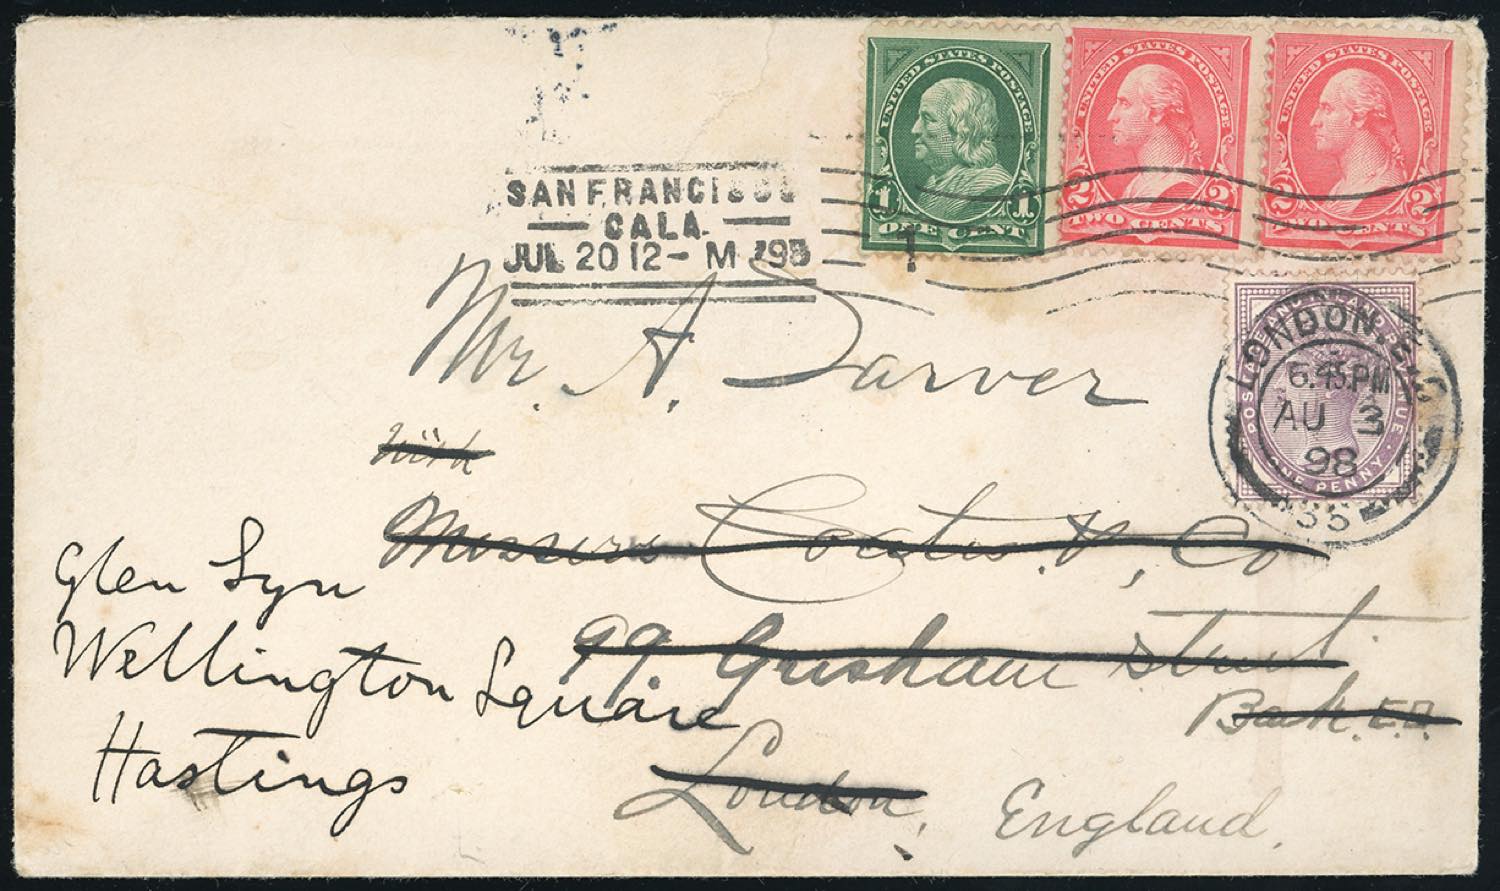 UNITED STATES POSTAGE
1 1
ONE CENT
UNITED STATES POSTAGE
2 2
TWO CENTS
UNITED STATES POSTAGE
2 2
TWO CENTS
SAN FRANCISCO
CALA.
JUL 20 12-M '98
1
LONDON. E.C
6.45 PM
AU 3
98
35
PENNY
Mr. A. Tarver
with
Messrs Coates & Co
99 Gresham Street
Bank. E.C.
London, England.
Glen Lyn
Wellington Square
Hastings